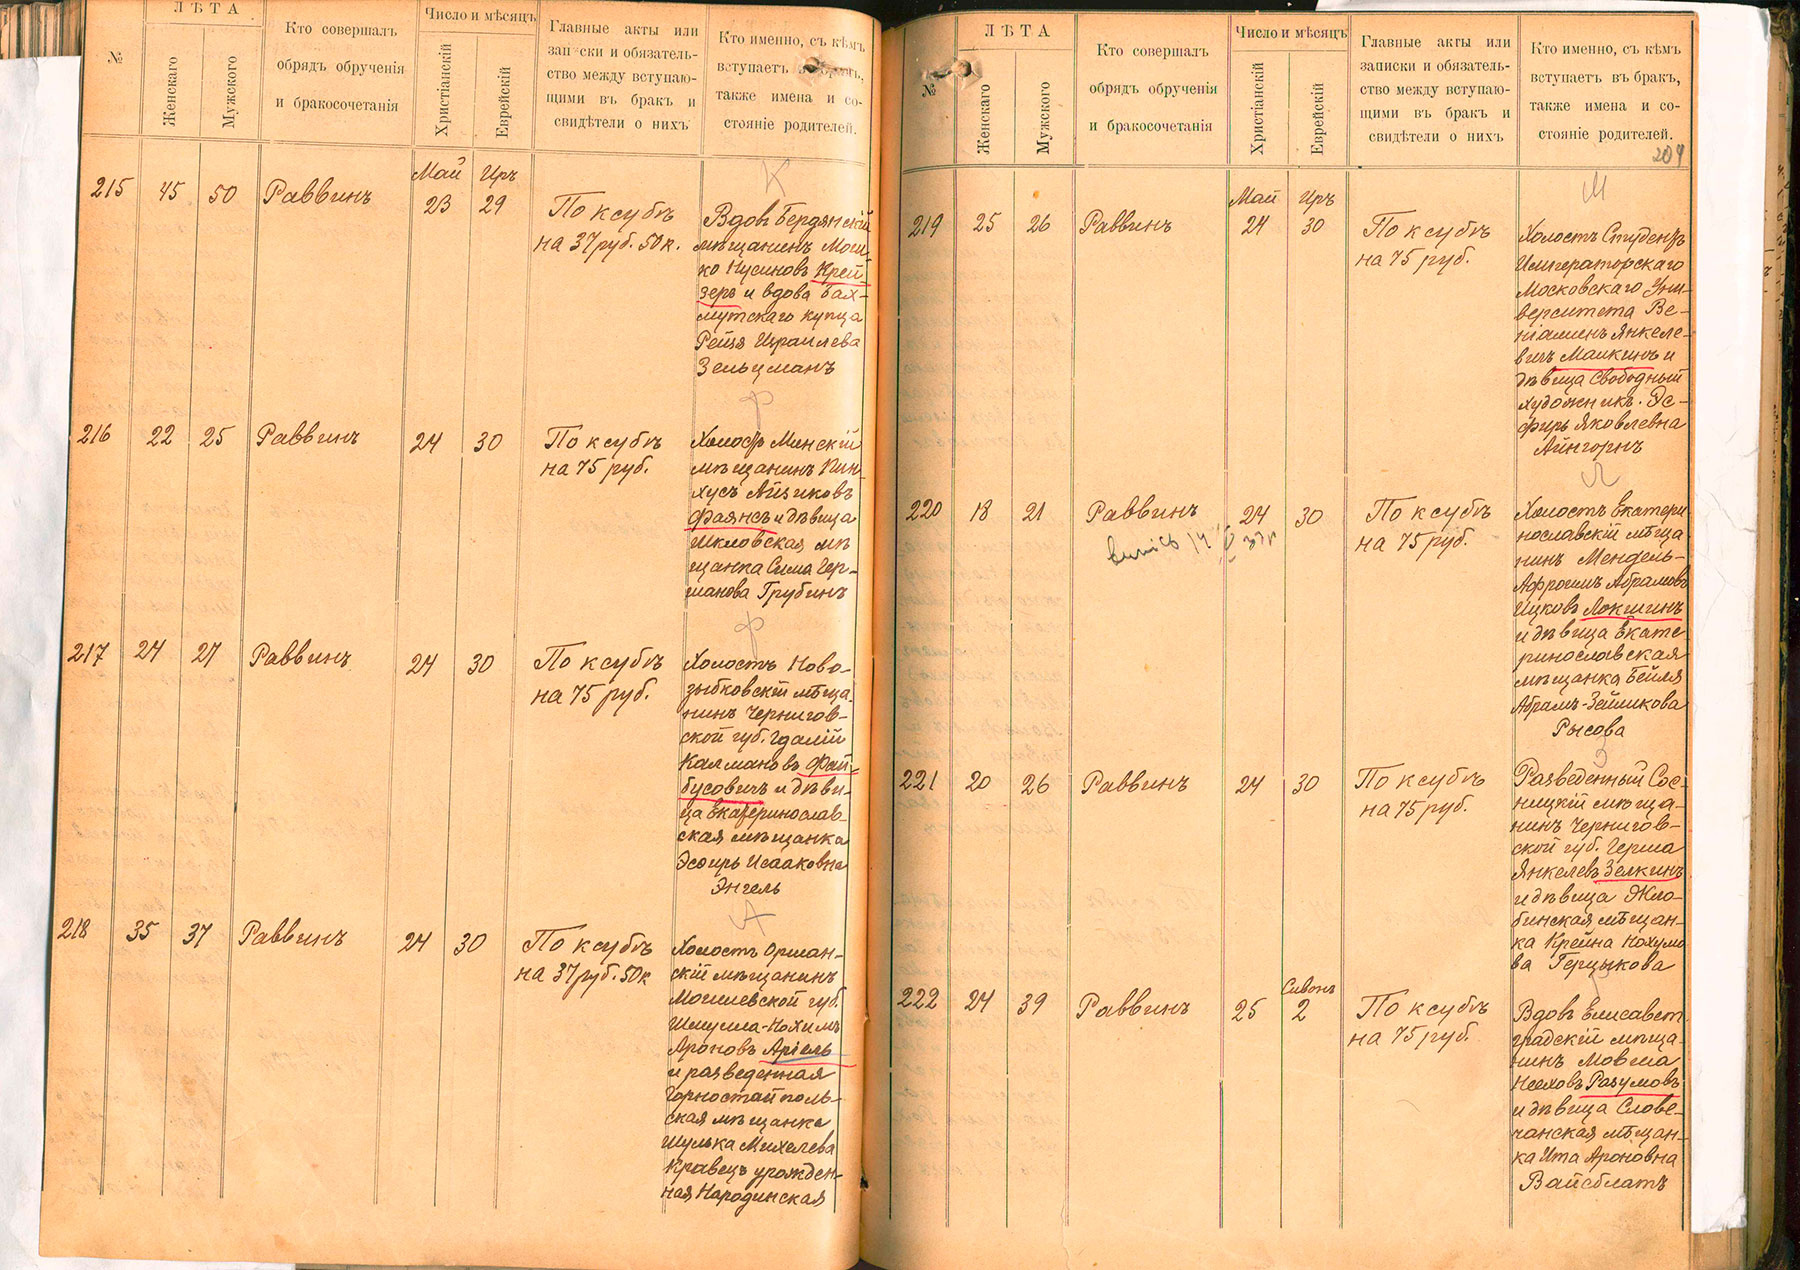 №
ЛѢТА
Женскаго
Мужского
Кто совершалъ
обрядъ обрученія
и бракосочетанія
Число и мѣсяцъ
Христіанскій
Еврейскій
Главные акты или
записки и обязатель-
ство между вступаю-
щими въ бракъ и
свидѣтели о нихъ
Кто именно, съ кѣмъ
вступаетъ въ бракъ,
также имена и со-
стояніе родителей.
К
215 45 50 Раввинъ
Май Иръ
23 29
По ксубѣ
на 37 руб. 50 к.
Вдовъ Бердянскій
мѣщанинъ Мош-
ко Нусиновъ Крей
зеръ и вдова Бах-
мутскаго купца
Рейзя Израилева
Зельцманъ
Ф
216 22 25 Раввинъ 24 30
По ксубѣ
на 75 руб.
Холостъ Минскій
мѣщанинъ Пин-
хусъ Айзиковъ
Фаянсъ и дѣвица
Шкловская мѣ
щанка Сима Гер-
шанова Грубинъ
Ф
217 24 27 Раввинъ 24 30
По ксубѣ
на 75 руб.
Холостъ Ново-
зыбковскій мѣща
нинъ Чернигов-
ской губ. Гдалій
Калмановъ Фай-
бусовичъ и дѣви-
ца Екатеринослав-
ская мѣщанка
Эсфирь Исааковна
Энгель
А
218 35 37 Раввинъ 24 30
По ксубѣ
на 37 руб. 50 к
Холостъ Оршан-
скій мѣщанинъ
Могилевской губ.
Шмуила-Нохимъ
Ароновъ Аріель
и разведенная
Горностайполь-
ская мѣщанка
Шулька Михелева
Кравецъ урожден-
ная Народинская
№
ЛѢТА
Женскаго
Мужского
Кто совершалъ
обрядъ обрученія
и бракосочетанія
Число и мѣсяцъ
Христіанскій
Еврейскій
Главные акты или
записки и обязатель-
ство между вступаю-
щими въ бракъ и
свидѣтели о нихъ
Кто именно, съ кѣмъ
вступаетъ въ бракъ,
также имена и со-
стояніе родителей.
204
М
219 25 26 Раввинъ
Май Иръ
24 30
По ксубѣ
на 75 руб.
Холостъ Студентъ
Императорскаго
Московскаго Уни-
верситета Ве-
ніаминъ Янкеле-
вичъ Маикинъ и
дѣвица Свободный
художникъ. Эс-
фирь Яковлевна
Айнгорнъ
Л
220 18 21 Раввинъ 24 30
По ксубѣ
на 75 руб.
Холостъ Екатери
нославскій мѣща
нинъ Мендель-
Афроимъ Абрамовъ
Ицковъ Локшинъ
и дѣвица Екате-
ринославская
мѣщанка Бейля
Абрамъ-Зеймикова
Рысова
З
221 20 26 Раввинъ 24 30
По ксубѣ
на 75 руб.
Разведенный Сос-
ницкій мѣща-
нинъ Чернигов-
ской губ. Герша
Янкелевъ Зелкинъ
и дѣвица Жло-
бинская мѣщан-
ка Крейна Нохумо
ва Герцыкова
Р
222 24 39 Раввинъ
Сивонъ
25 2
По ксубѣ
на 75 руб.
Вдовъ Елисавет
градскій мѣща-
нинъ Мовша
Несховъ Разумовъ
и дѣвица Слове-
чанская мѣщан-
ка Ита Ароновна
Вайсблатъ